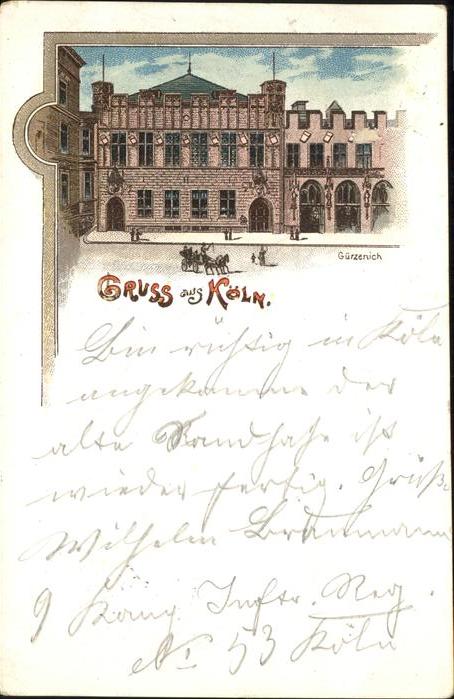 Gürzenich
Gruss aus Köln.
Bin richtig in Köln
angekommen der
alte Sandhase ist
wieder fertig. Grüße
Wilhelm Braumann
9 Komp. Inftr. Reg.
No 53 Köln